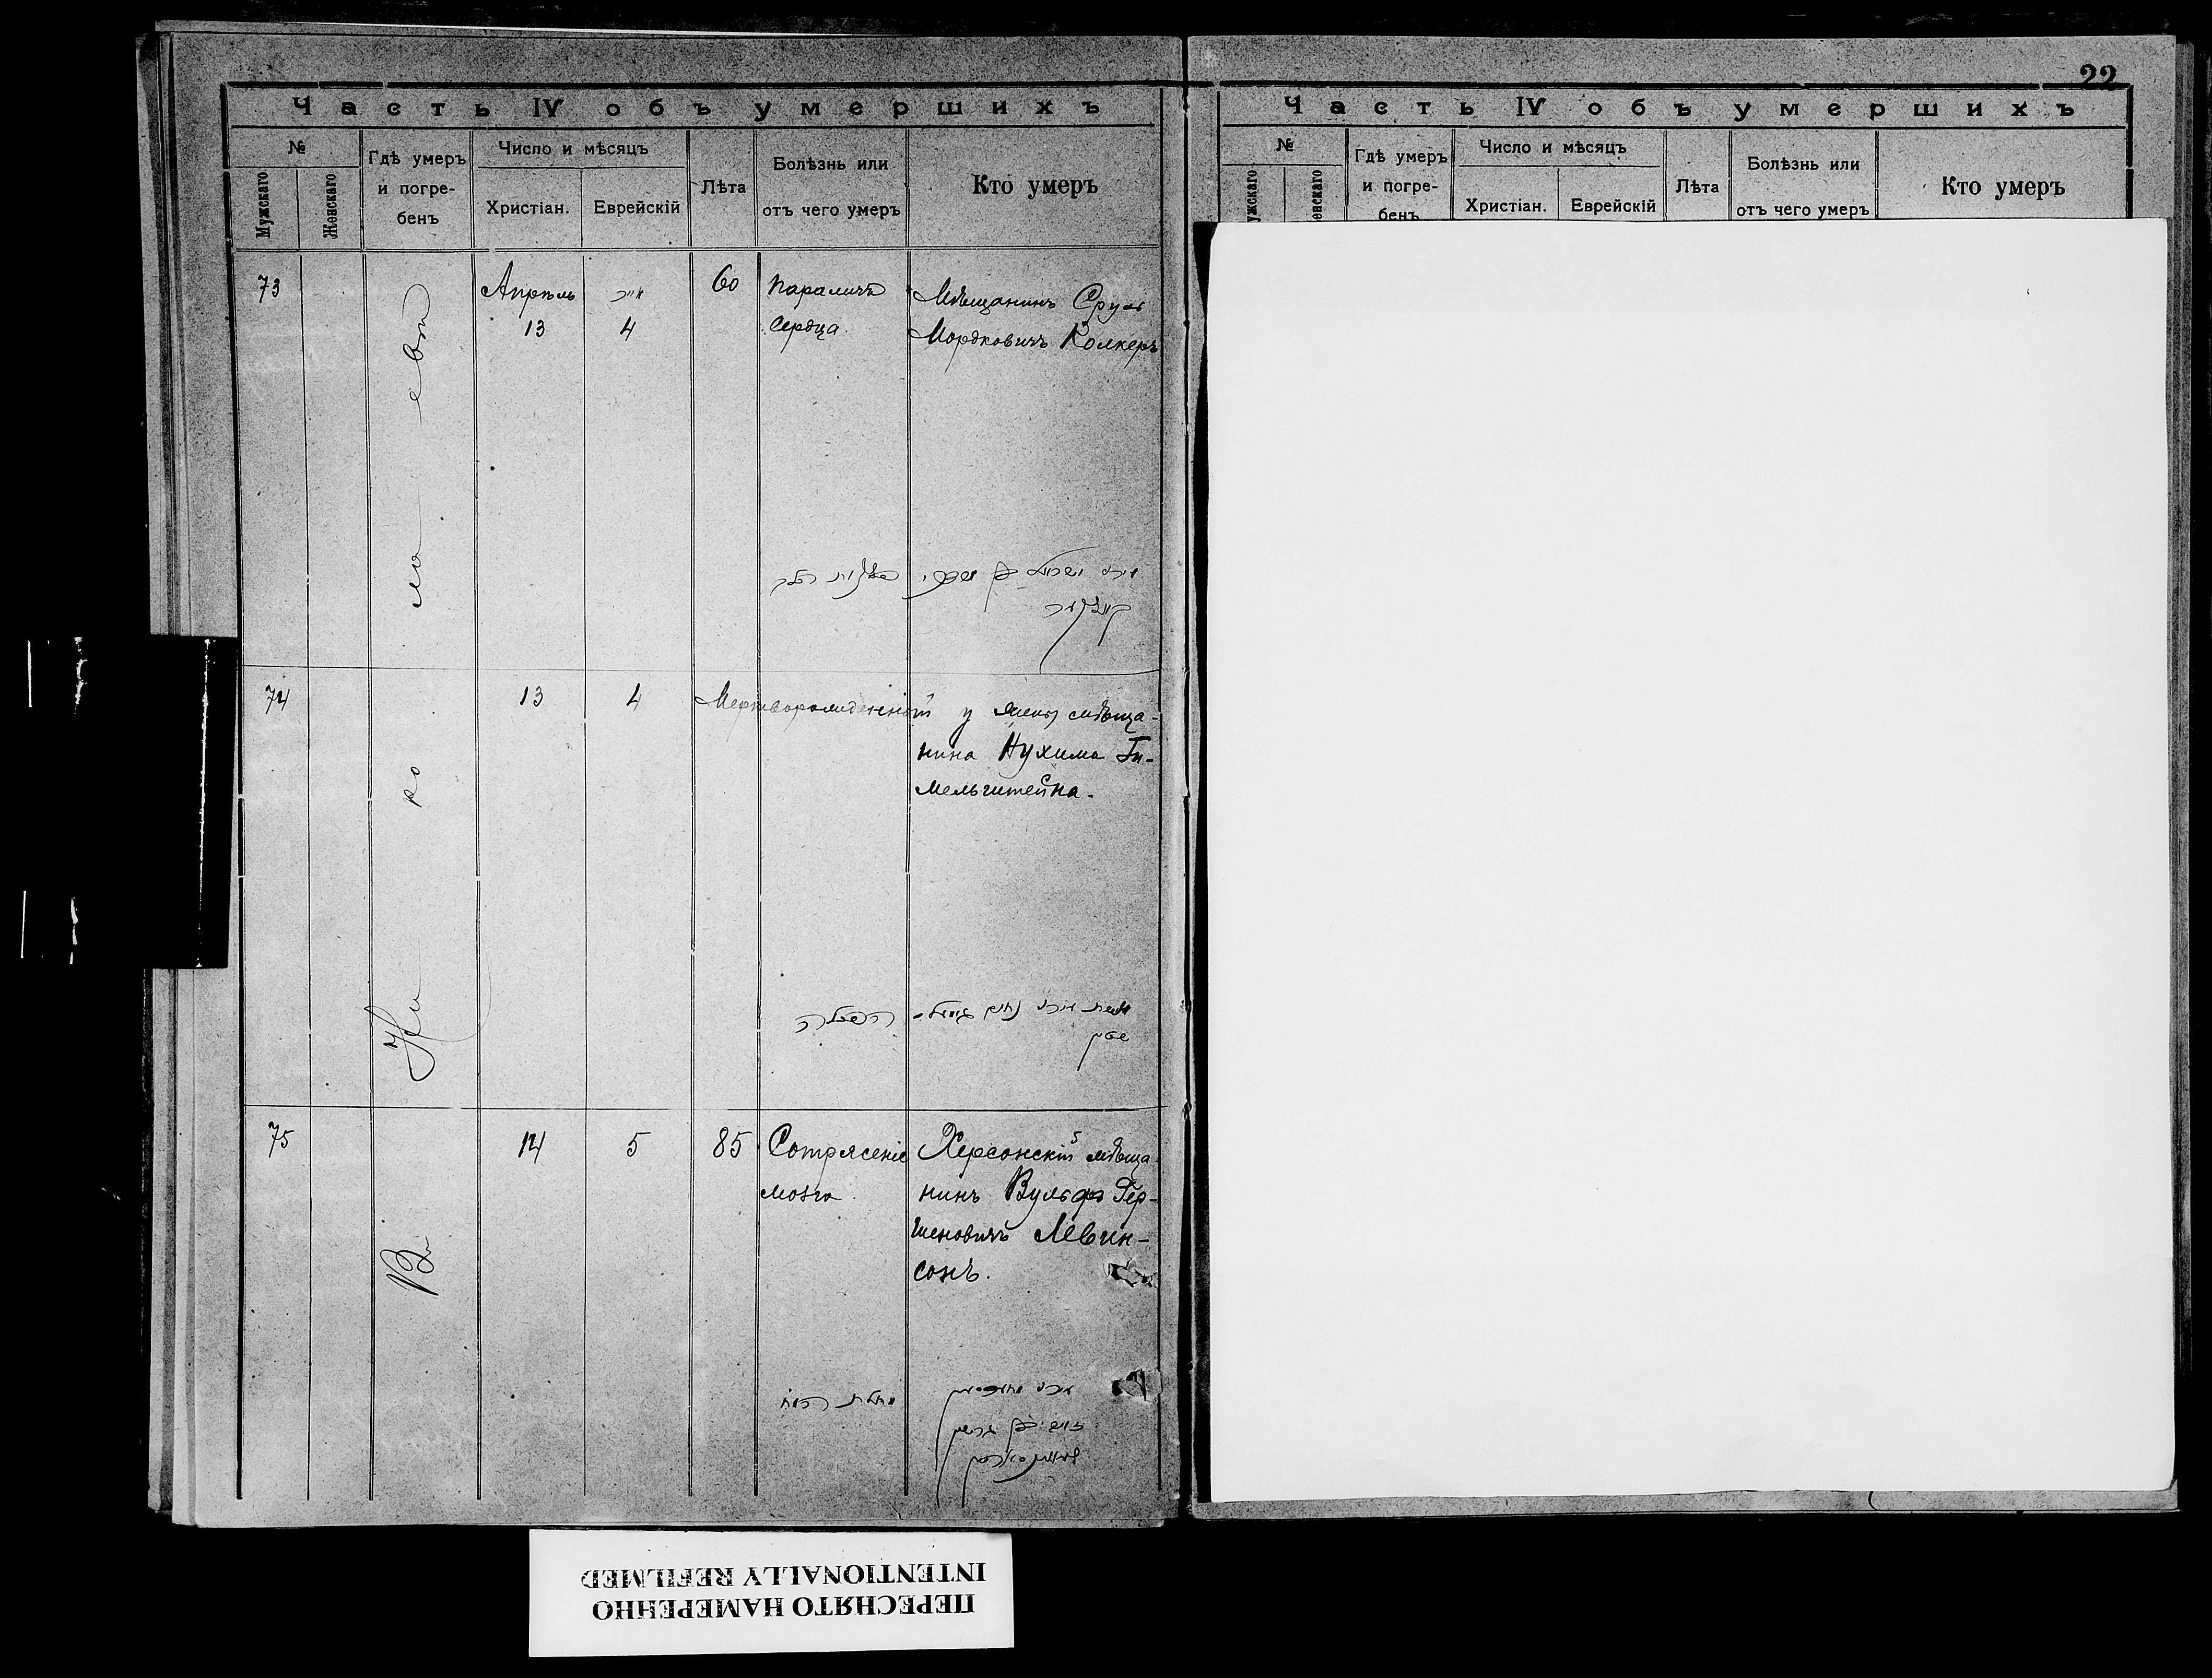 22
Часть IV объ умершихъ
№
Мужскаго
Женскаго
Гдѣ умеръ
и погре-
бенъ
Число и мѣсяцъ
Христіан.
Еврейскій
Лѣта
Болѣзнь или
отъ чего умеръ
Кто умеръ
Въ Николаевѣ
73
Апрѣль
13
אייר
4
60
Параличъ
сердца.
Мѣщанинъ Сруль
Мордковичъ Колкеръ
74
13
4
Мертворожденный у жены мѣща-
нина Нухима Ги-
мельштейна.
75
14
5
85
Сотрясеніе
мозга.
Херсонскій мѣща-
нинъ Вульфъ Гер-
шеновичъ Левин-
сонъ.
מחלת המוח
Часть IV объ умершихъ
№
ужскаго
енскаго
Гдѣ умеръ
и погре-
бенъ
Число и мѣсяцъ
Христіан.
Еврейскій
Лѣта
Болѣзнь или
отъ чего умеръ
Кто умеръ
ПЕРЕСНЯТО НАМЕРЕННО
INTENTIONALLY REFILMED